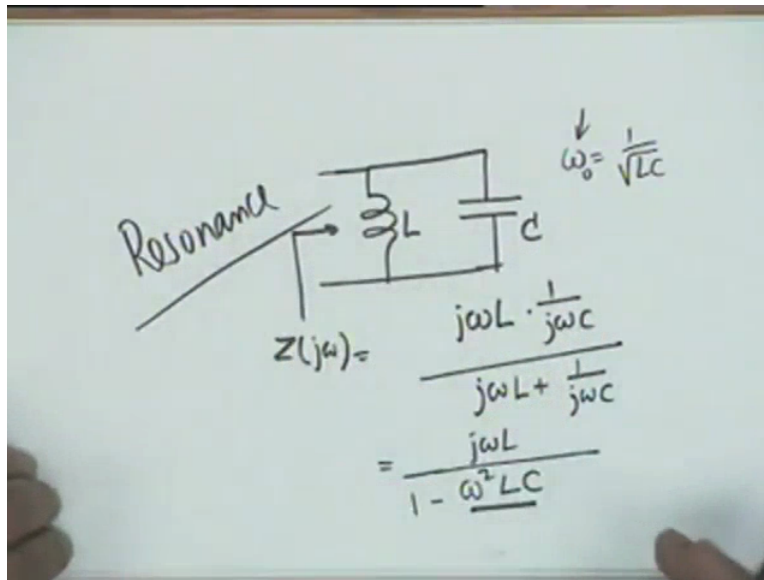 Resonance
ω₀ = 1/√LC
L
C
Z(jω) = (jωL · 1/jωC)/(jωL + 1/jωC)
= jωL/(1 - ω²LC)